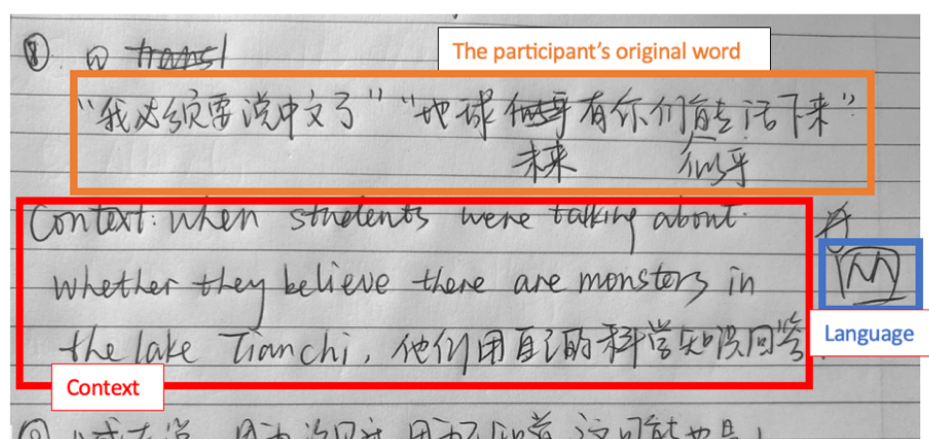 ⑧ transl
The participant's original word
"我必须要说中文了" "地球似乎有你们能活下来"
未来 似乎
Context: when students were talking about
whether they believe there are monsters in
M
the lake Tianchi, 他们用自己的科学知识回答
Language
Context